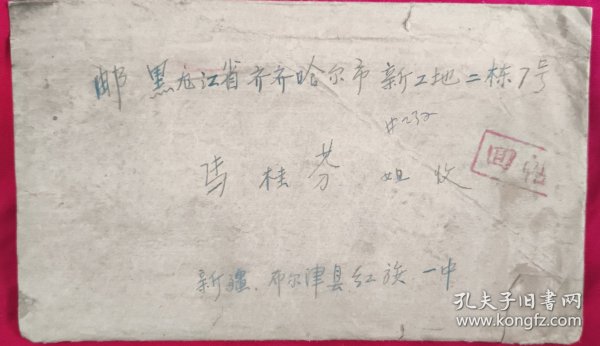 邮 黑龙江省齐齐哈尔市新工地二栋7号
#232
马桂芬 姐 收
回
新疆.布尔津县红族一中
孔夫子旧书网
www.kongfz.com